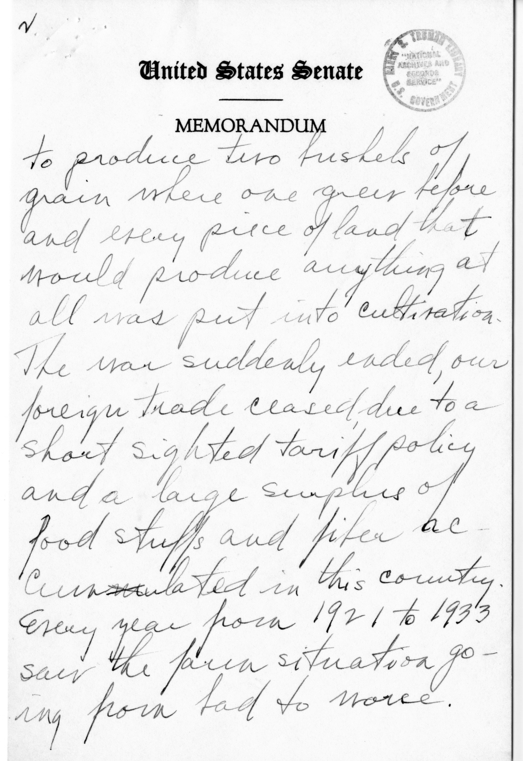 2
United States Senate
HARRY S. TRUMAN LIBRARY
"NATIONAL
ARCHIVES AND
RECORDS
SERVICE"
U.S. GOVERNMENT
MEMORANDUM
to produce two bushels of
grain where one grew before
and every piece of land that
would produce anything at
all was put into cultivation.
The war suddenly ended, our
foreign trade ceased, due to a
short sighted tariff policy
and a large surplus of
food stuffs and fiber ac-
cumulated in this country.
Every year from 1921 to 1933
saw the farm situation go-
ing from bad to worse.